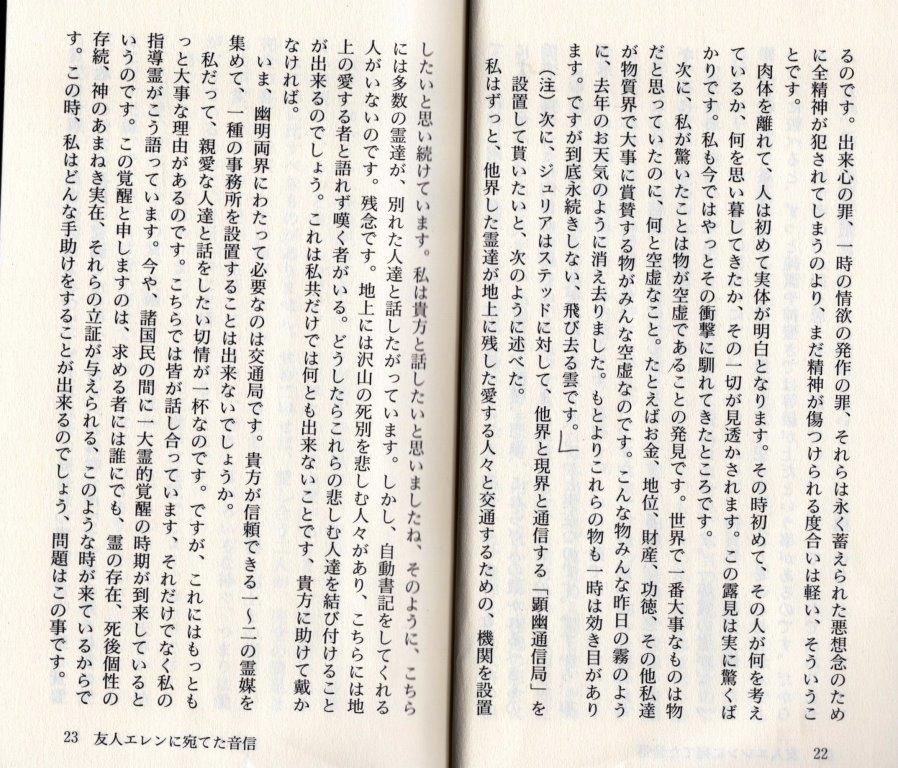 るのです。出来心の罪、一時の情欲の発作の罪、それらは永く蓄えられた悪想念のため
に全精神が犯されてしまうのより、まだ精神が傷つけられる度合いは軽い、そういうこ
とです。
肉体を離れて、人は初めて実体が明白となります。その時初めて、その人が何を考え
ているか、何を思い暮してきたか、その一切が見透かされます。この露見は実に驚くば
かりです。私も今ではやっとその衝撃に馴れてきたところです。
次に、私が驚いたことは物が空虚であることの発見です。世界で一番大事なものは物
だと思っていたのに、何と空虚なこと。たとえばお金、地位、財産、功徳、その他私達
が物質界で大事に賞賛する物がみんな空虚なのです。こんな物みんな昨日の霧のよう
に、去年のお天気のように消え去りました。もとよりこれらの物も一時は効き目があり
ます。ですが到底永続きしない、飛び去る雲です。」
(注) 次に、ジュリアはステッドに対して、他界と現界と通信する「顕幽通信局」を
設置して貰いたいと、次のように述べた。
私はずっと、他界した霊達が地上に残した愛する人々と交通するための、機関を設置
22
したいと思い続けています。私は貴方と話したいと思いましたね、そのように、こちら
には多数の霊達が、別れた人達と話したがっています。しかし、自動書記をしてくれる
人がいないのです。残念です。地上には沢山の死別を悲しむ人々があり、こちらには地
上の愛する者と語れず嘆く者がいる。どうしたらこれらの悲しむ人達を結び付けること
が出来るのでしょう。これは私共だけでは何とも出来ないことです、貴方に助けて戴か
なければ。
いま、幽明両界にわたって必要なのは交通局です。貴方が信頼できる一〜二の霊媒を
集めて、一種の事務所を設置することは出来ないでしょうか。
私だって、親愛な人達と話をしたい切情が一杯なのです。ですが、これにはもっとも
っと大事な理由があるのです。こちらでは皆が話し合っています、それだけでなく私の
指導霊がこう語っています。今や、諸国民の間に一大霊的覚醒の時期が到来していると
いうのです。この覚醒と申しますのは、求める者には誰にでも、霊の存在、死後個性の
存続、神のあまねき実在、それらの立証が与えられる、このような時が来ているからで
す。この時、私はどんな手助けをすることが出来るのでしょう、問題はこの事です。
23 友人エレンに宛てた音信